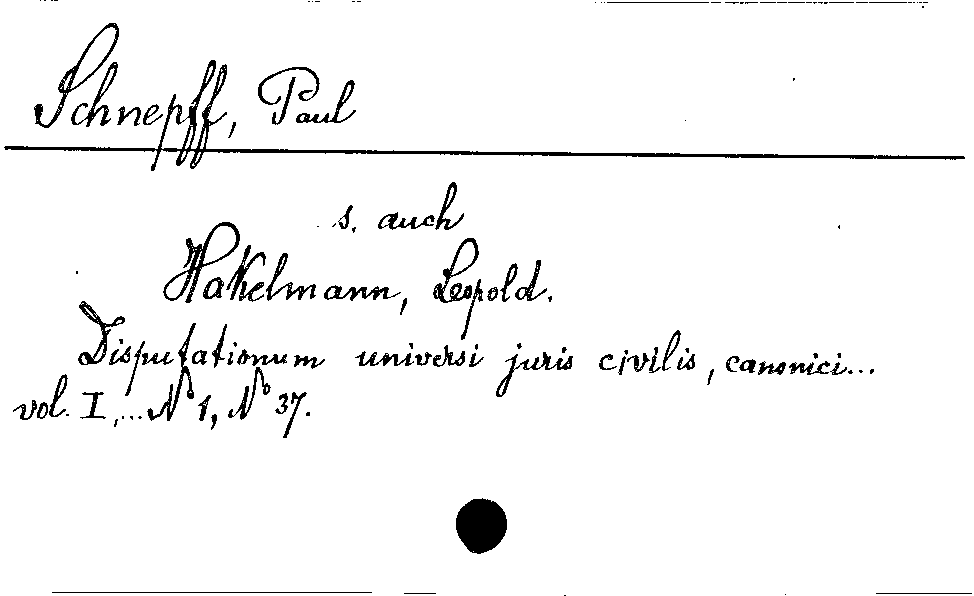 Schnepff, Paul
s. auch
Hakelmann, Leopold.
Disputationum universi juris civilis, canonici...
vol. I,... N° 1, N° 37.